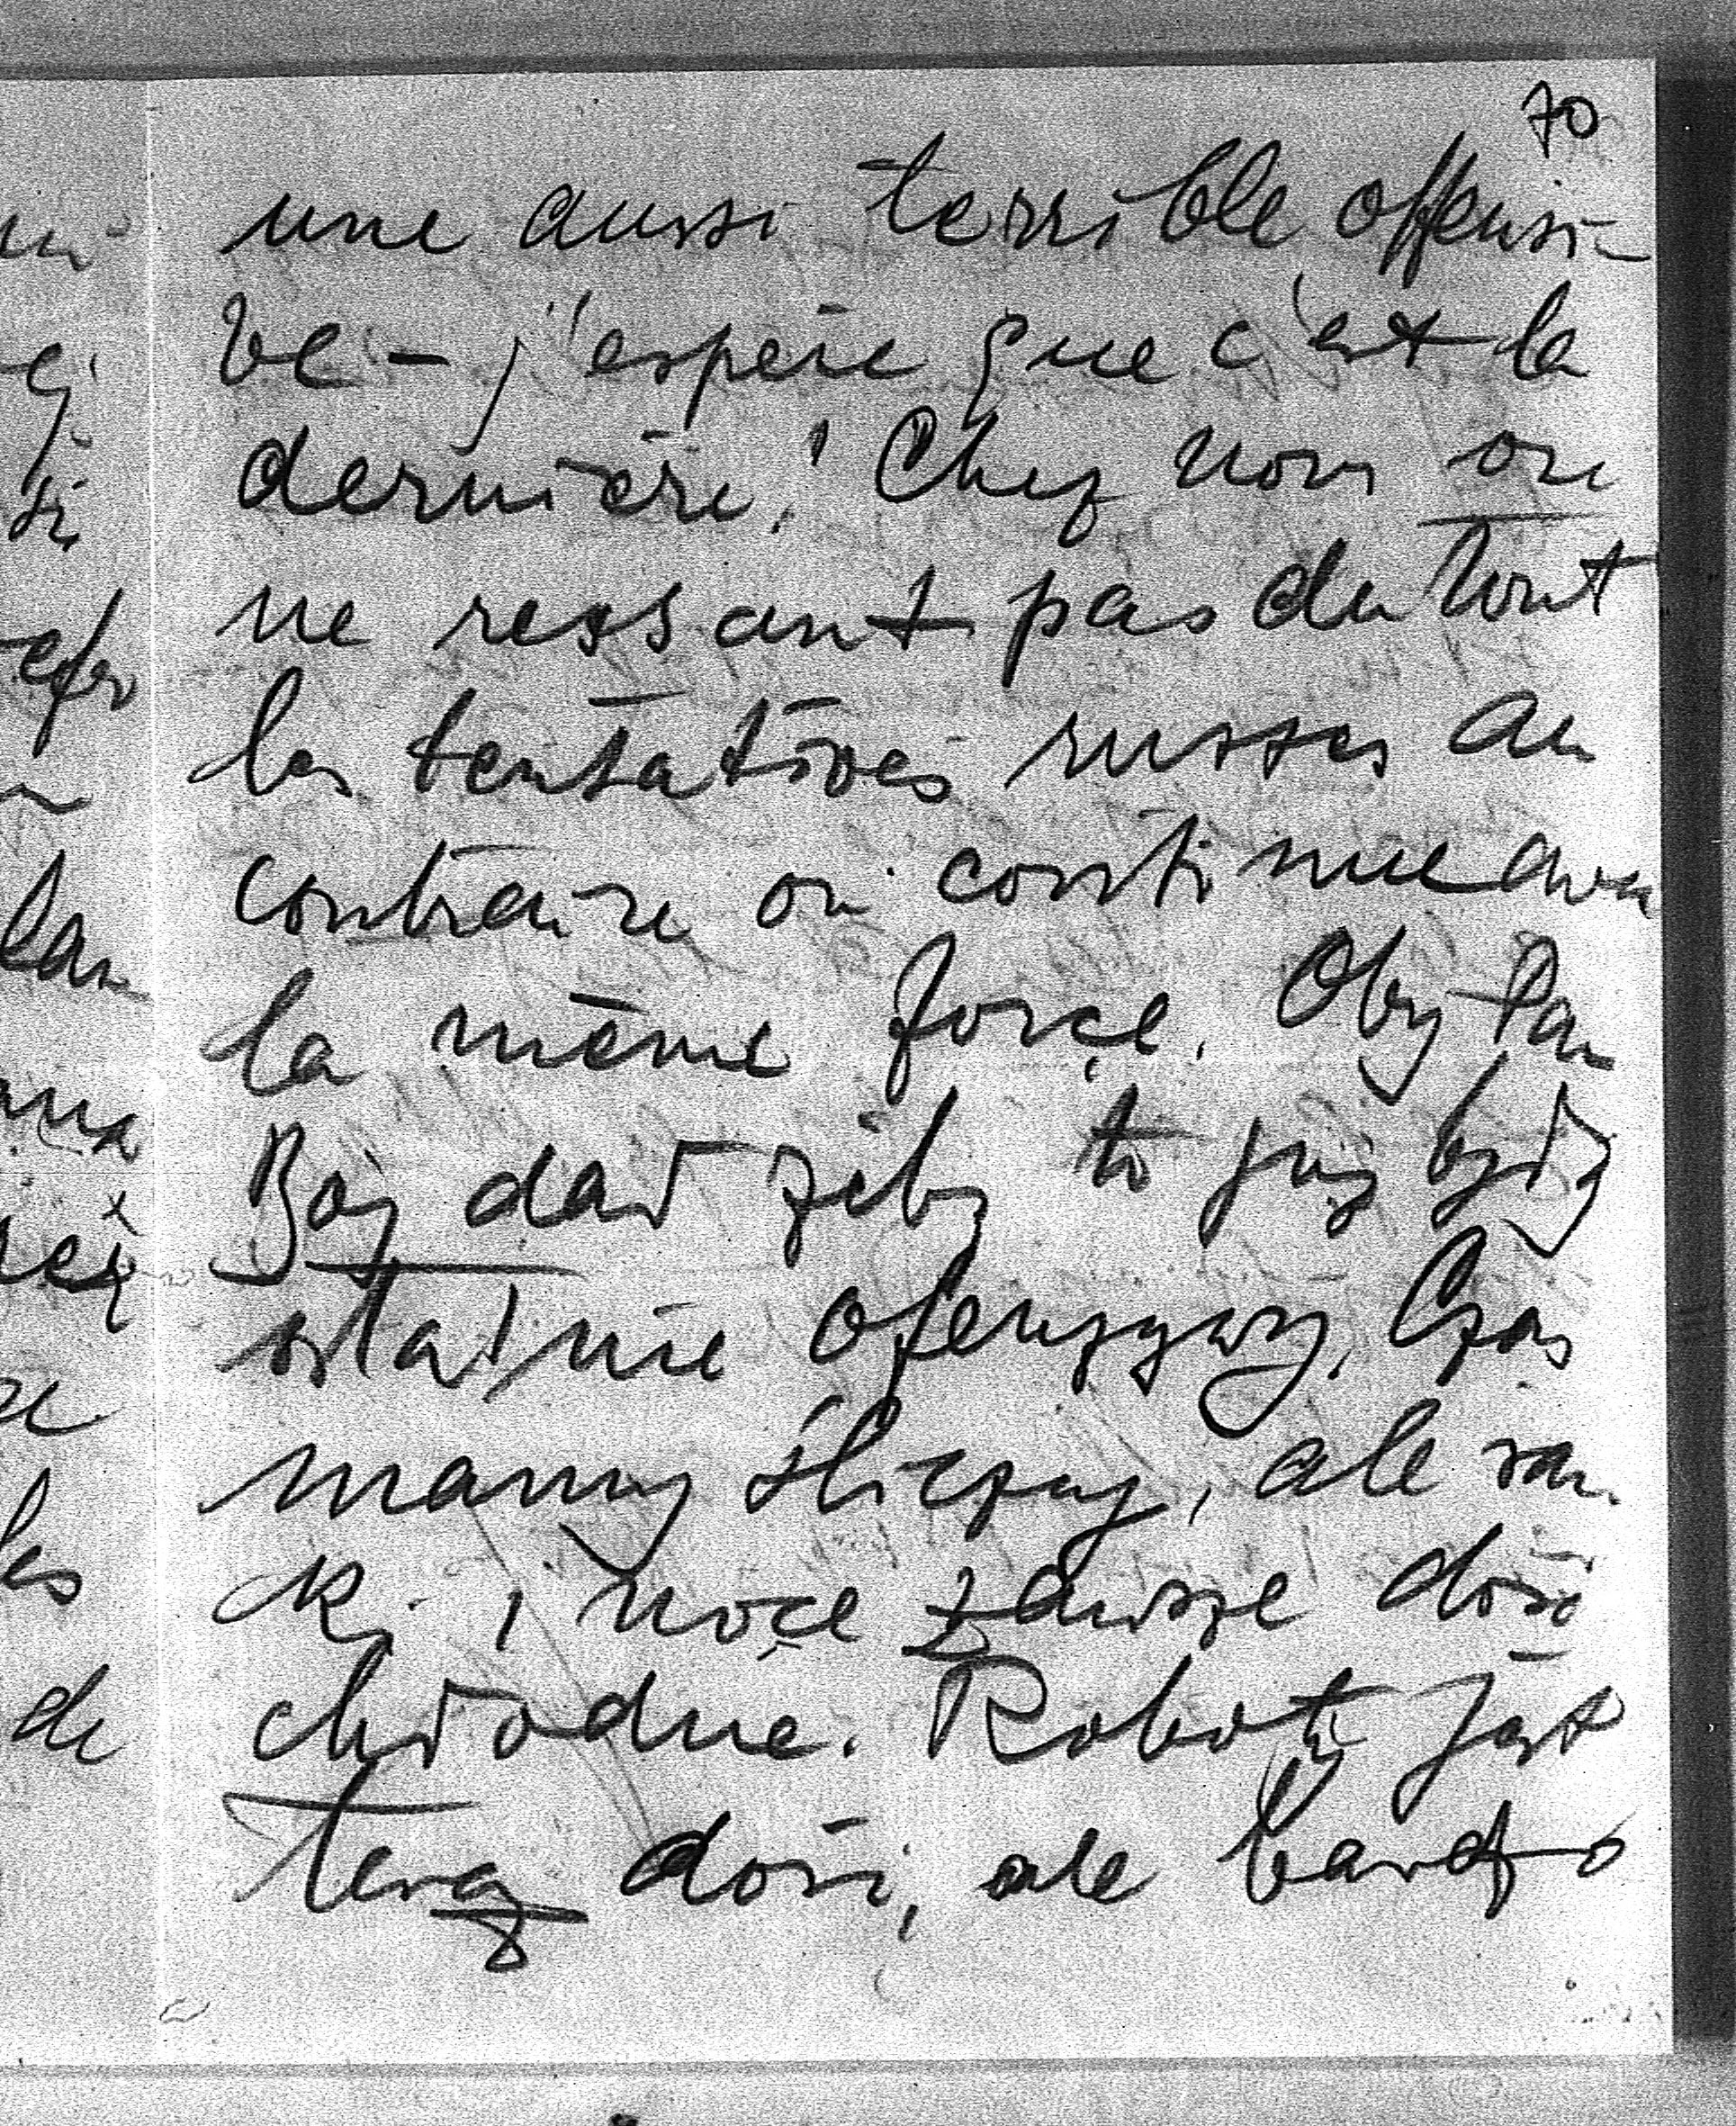 70
une aussi terrible offensi-
ve - j'espère que c'est la
dernière! Chez nous on
ne ressant pas du tout
les tentatives russes au
contraire on continue avec
la même force. Oby Pan
Bóg dał żeby to już były
ostatnie ofenzywy. Czas
mamy śliczny, ale ran-
ki i noce zawsze dość
chłodne. Roboty jest
teraz dość, ale bardzo